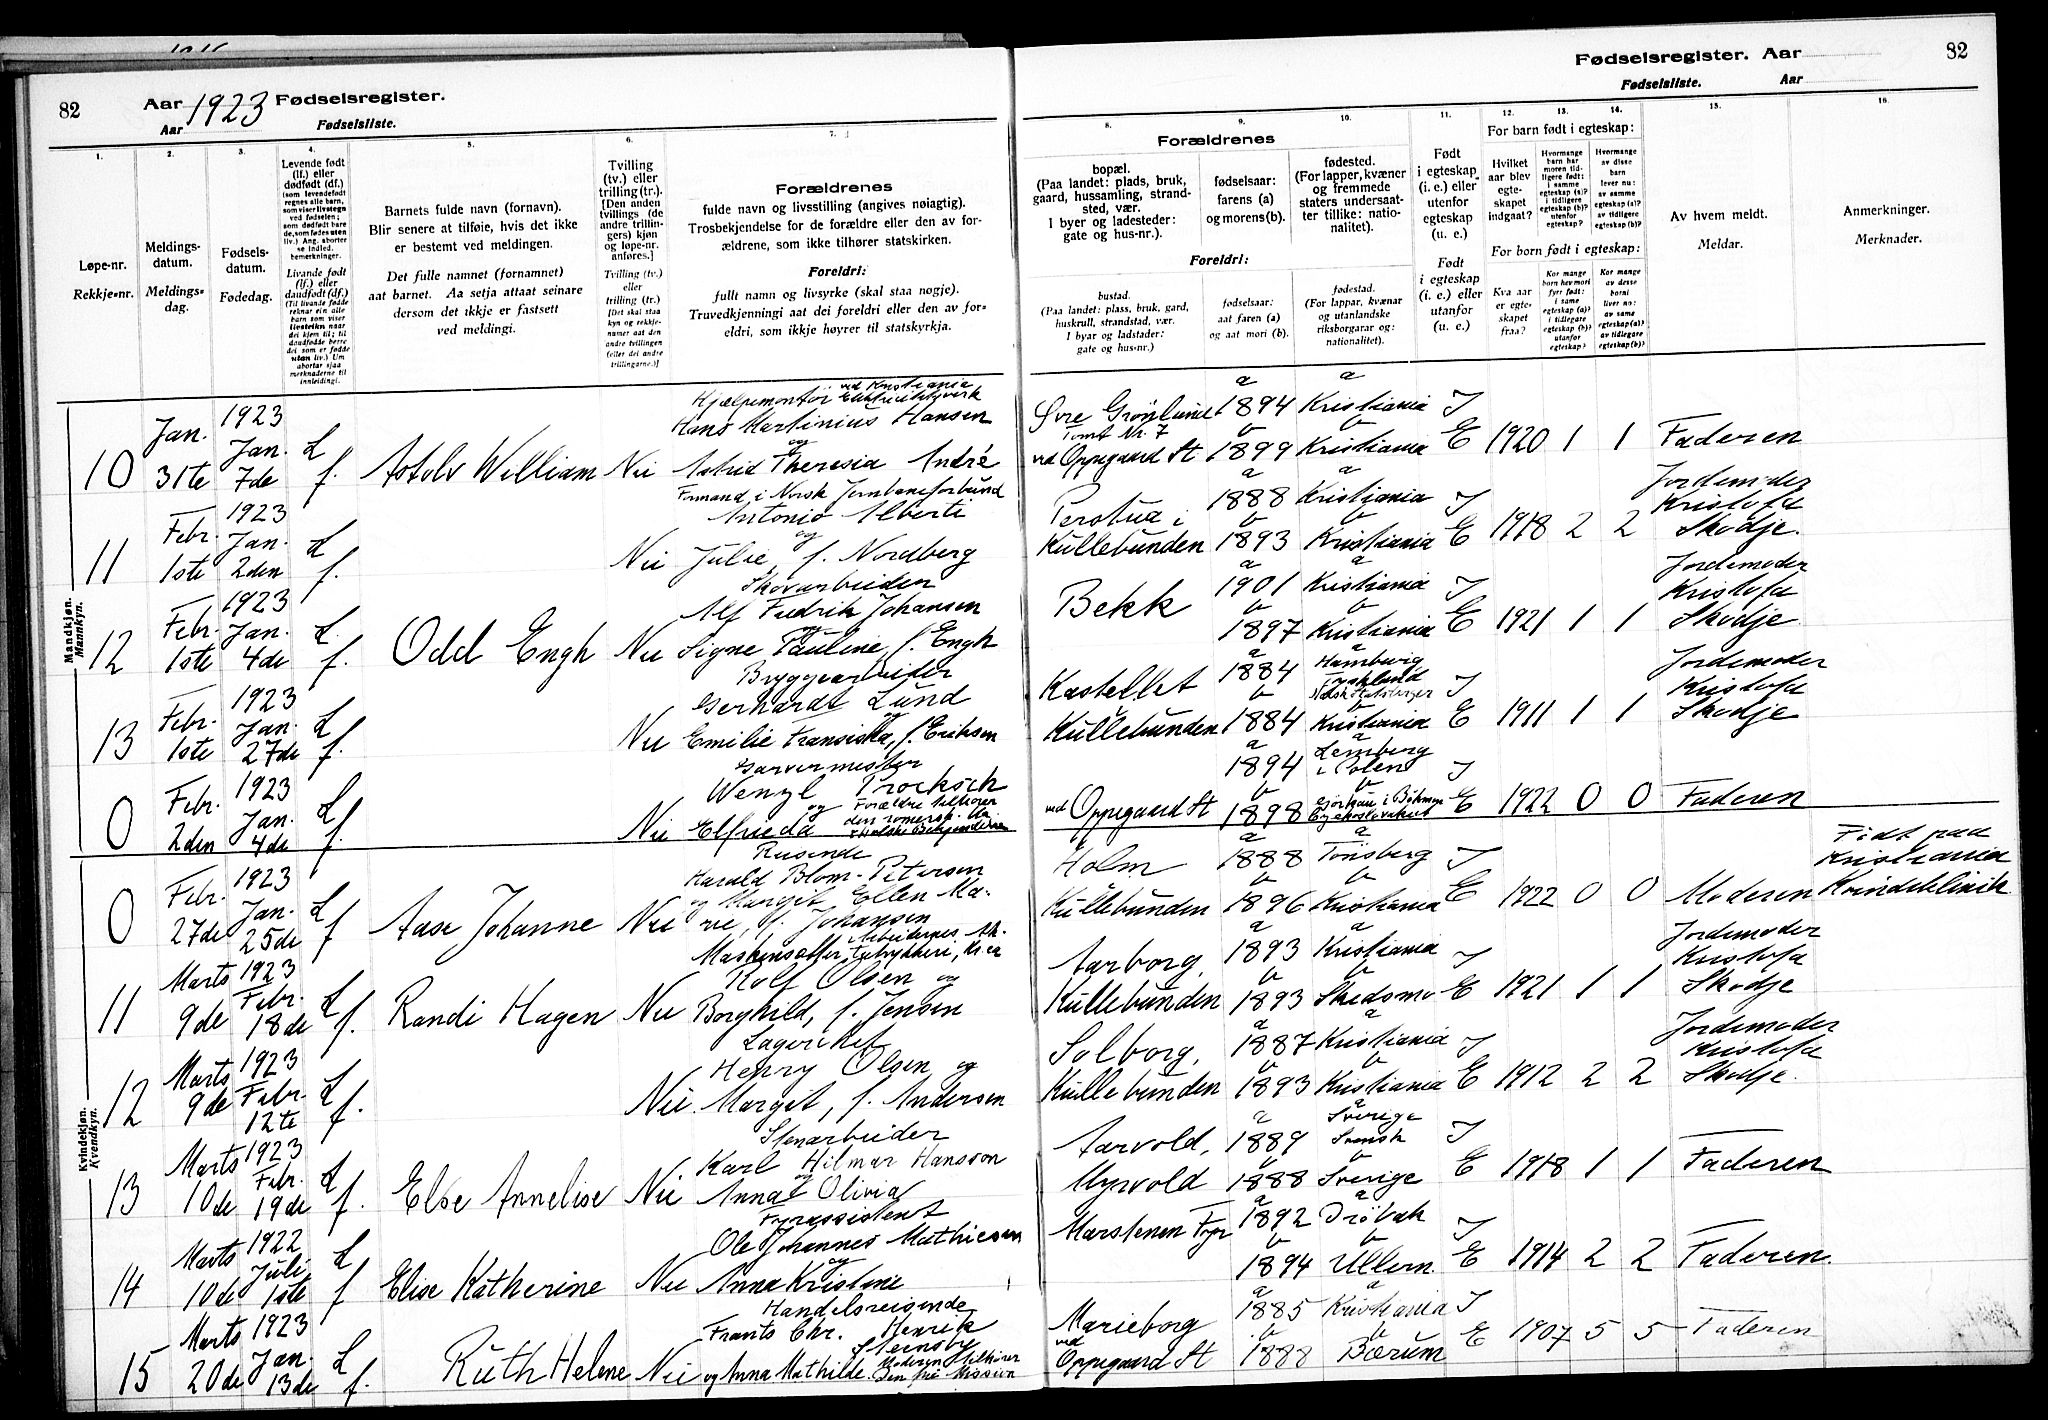 82
Aar 1923 Fødselsregister.
Aar Fødselsliste.
1.
2.
3.
4.
5.
6.
7.
Løpe-nr.
Rekkje-nr.
Meldings-
datum.
Meldings-
dag.
Fødsels-
datum.
Fødedag.
Levende født
(lf.) eller
dødfødt (df.)
Livande født
(lf.) eller
daudfødt (df.)
Barnets fulde navn (fornavn).
Blir senere at tilføie, hvis det ikke
er bestemt ved meldingen.
Det fulle namnet (fornamnet)
aat barnet. Aa setja attaat seinare
dersom det ikkje er fastsett
ved meldingi.
Tvilling
(tv.) eller
trilling (tr.).
[Den anden
tvillings (de
andre trillin-
gers) kjøn
og løpe-nr.
anføres.]
Tvilling (tv.)
eller
trilling (tr.)
Forældrenes
fulde navn og livsstilling (angives nøiagtig).
Trosbekjendelse for de forældre eller den av for-
ældrene, som ikke tilhører statskirken.
Foreldri:
fullt namn og livsyrke (skal staa nøgje).
Truvedkjenningi aat dei foreldri eller den av for-
eldri, som ikkje høyrer til statskyrkja.
Mandkjøn.
Mannkyn.
10 Jan. 31te 1923 Jan. 7de L. f. Astolv William Nei
Hjælpemontør ved Kristiania Elektricitetsverk
Hans Martinius Hansen
og
Astrid Theresia André
11 Febr. 1ste 1923 Jan. 2den L f. Nei
Formand i Norsk Jernbaneforbund
Antonio Alberti
og
Julie, f. Nordberg
12 Febr. 1ste 1923 Jan. 4de L. f. Odd Engh Nei
Skovarbeider
Alf Fredrik Johansen
Signe Pauline, f. Engh
13 Febr. 1ste 1923 Jan. 27de L f. Nei
Bryggearbeider
Gerhardt Lund
og
Emilie Fransiska, f. Eriksen
0 Febr. 2den 1923 Jan. 4de L f. Nei
Garvermester
Wenzl Procksch
og
Elfrieda
Forældre tilhører
den romersk-
Kvindekjøn.
Kvendkyn.
0 Febr. 27de 1923 Jan. 25de L f Aase Johanne Nei
Reisende
Harald Blom-Petersen
og Margit Ellen Ma-
rie, f. Johansen
11 Marts 9de 1923 Febr. 18de L f. Randi Hagen Nei
Maskinsætter, Arbeidernes Ak-
tietrykkeri, Kr.a
Rolf Olsen og
Borghild, f. Jensen
12 Marts 9de 1923 Febr. 12te L f. Nei.
Lagerchef
Henry Olsen og
Margit, f. Andersen
13 Marts 10de 1923 Febr. 19de L f. Else Annelise Nei
Stenarbeider
Karl Hilmar Hansson
og
Anna Olivia
14 Marts 10de 1922 Juli 1ste L f Elise Katherine Nei
Fyrassistent
Ole Johannes Mathiesen
og
Anna Kristine
15 Marts 20de 1923 Jan. 13de L f. Ruth Helene Nei
Handelsreisende
Frants Chr. Henrik
Stensby
og Anna Mathilde. Moderen tilhører
Den frie Mission
Fødselsregister. Aar
82
Fødselsliste. Aar
8.
9.
10.
11.
12.
13.
14.
15.
16.
Forældrenes
bopæl.
(Paa landet: plads, bruk,
gaard, hussamling, strand-
sted, vær.
I byer og ladesteder:
gate og hus-nr.).
fødselsaar:
farens (a)
og morens(b).
fødested.
(For lapper, kvæner
og fremmede
staters undersaat-
ter tillike: natio-
nalitet).
Foreldri:
bustad.
(Paa landet: plass, bruk, gard,
huskrull, strandstad, vær.
I byar og ladstader:
gate og hus-nr.)
fødselsaar:
aat faren (a)
og aat mori (b).
fødestad.
(For lappar, kvænar
og utanlandske
riksborgarar og:
nationalitet).
Født
i egteskap
(i. e.) eller
utenfor
egteskap
(u. e.)
Født
i egteskap
(i. e.) eller
utanfor
(u. e.)
For barn født i egteskap:
Hvilket
aar blev
egte-
skapet
indgaat?
Hvormange
barn har
moren tid-
ligere født:
i samme
egteskap (a)?
utenfor
egteskap (b)?
Hvormange
av disse
barn
lever nu:
av samme
egteskap (a)?
av tidligere
egteskap (b)?
For born født i egteskap:
Kva aar
er egte-
skapet
fraa?
Av hvem meldt.
Meldar.
Anmerkninger.
Merknader.
Øvre Grønlund
Tomt Nr. 7
ved Oppegaard St
a 1894 b 1899 a Kristiania b Kristiania I E 1920 1 1 Faderen
Perstua i
Kullebunden
a 1888 b 1893 Kristiania Kristiania I E 1918 2 2 Jordemoder Kristofa Skodje.
Bekk
a 1901 b 1897 Kristiania Kristiania I E 1921 1 1 Jordemoder Kristofa Skodje.
Kastellet
Kullebunden
a 1884 b 1884 Hamburg Tyskland Norsk Statsborger Kristiania I E 1911 1 1 Jordemoder Kristofa Skodje
ved Oppegaard St
a 1894 b 1898 Lemberg i Polen I E 1922 0 0 Faderen
Holm
Kullebunden
a 1888 b 1896 Tønsberg Kristiania I E 1922 0 0 Moderen
Født paa
Kristiania
Kvindeklinik
Aarborg,
Kullebunden
a 1893 b 1893 Kristiania Skedsmo I E 1921 1 1 Jordemoder Kristofa Skodje
Solborg,
Kullebunden
a 1887 b 1893 Kristiania Kristiania I E 1912 2 2 Jordemoder Kristofa Skodje.
Aarvold,
Myrvold
a 1889 b 1888 Sverige Svensk Sverige I E 1918 1 1 Faderen
Marstenen Fyr
a 1892 b 1894 Drøbak Ullern. I E 1914 2 2 Faderen.
Marieborg
ved
Oppegaard St
a 1885 b 1888 Kristiania Bærum I E 1907 5 5 Faderen